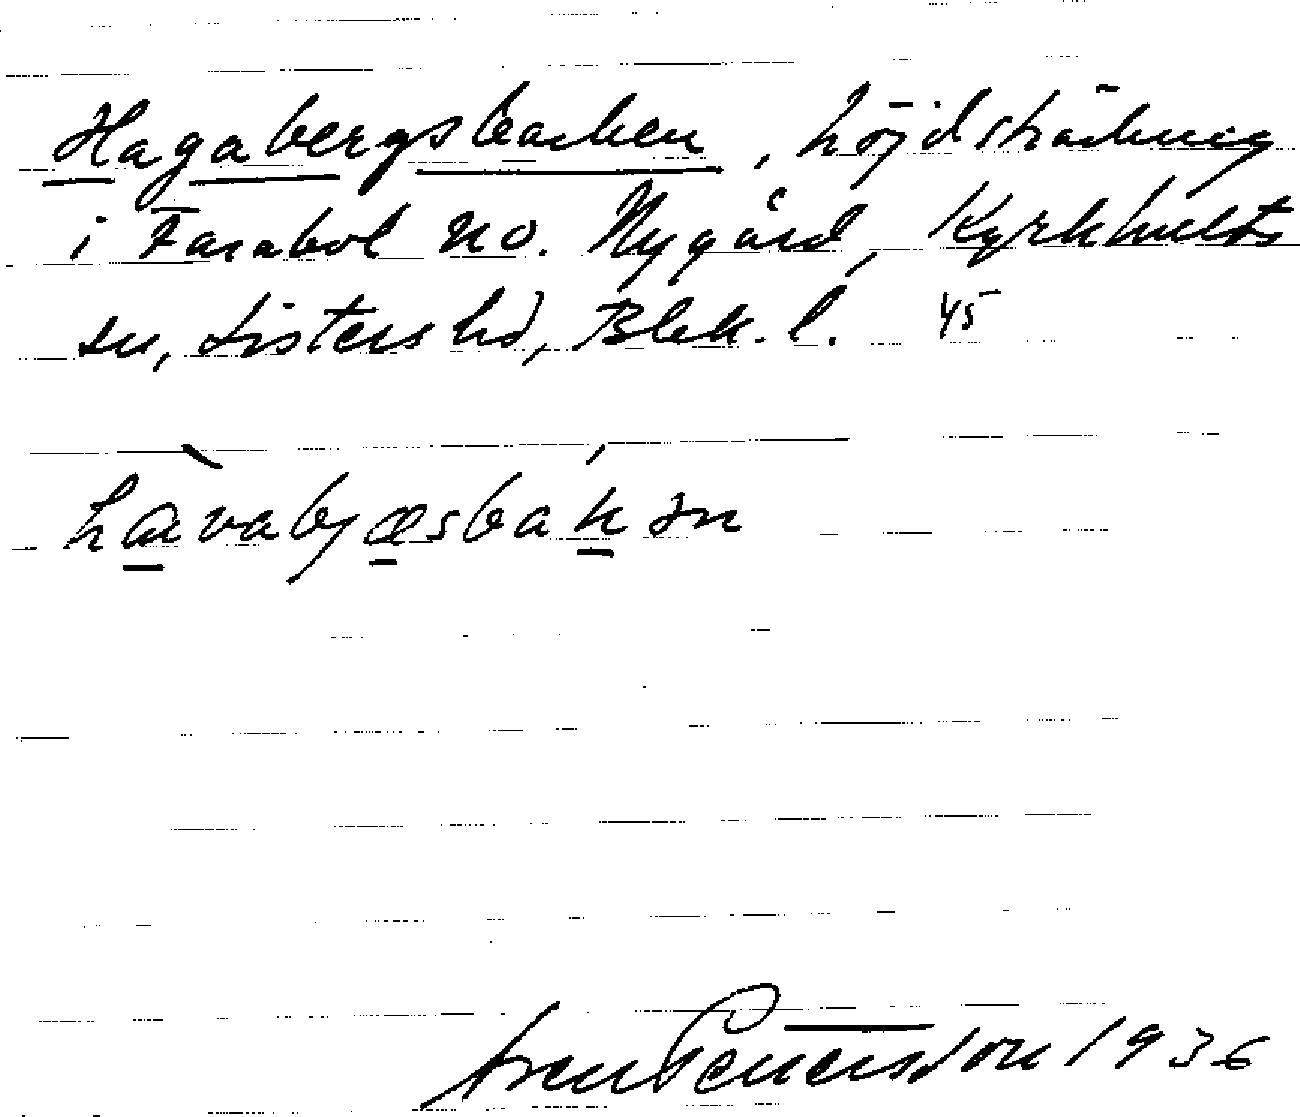 Hagabergsbacken, höjdsträckning
i Farabol no. Nygård, Kyrkhults
sn, Listers hd, Blek. l. 45
hαvabjæsbakən
Sven Benersson 1936